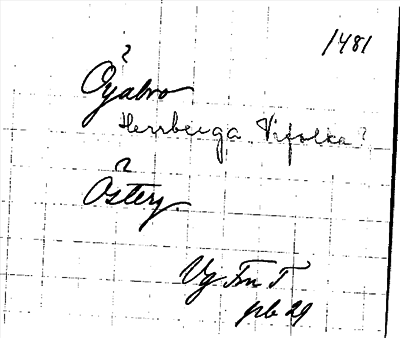 1481
?
Öjabro
Herrberga. Vifolka?
?
Österg.
Vg Fm T
pb 29